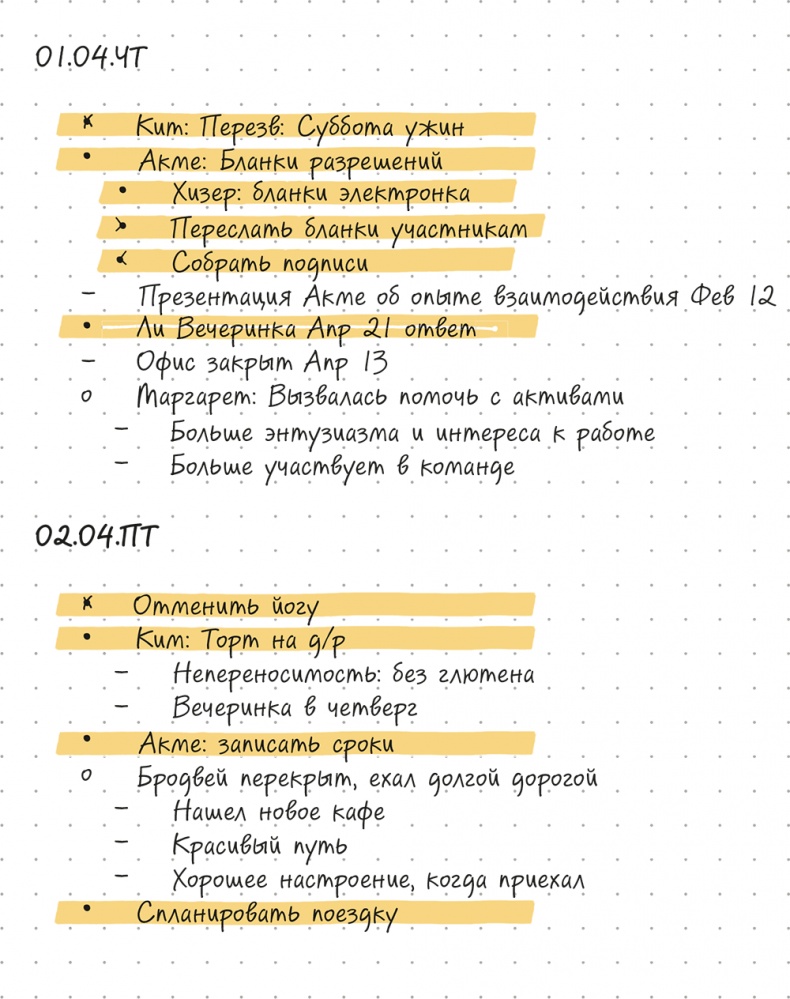 01.04.ЧТ
× Кит: Перезв: Суббота ужин
• Акме: Бланки разрешений
• Хизер: бланки электронка
> Переслать бланки участникам
< Собрать подписи
– Презентация Акме об опыте взаимодействия Фев 12
• Ли Вечеринка Апр 21 ответ
– Офис закрыт Апр 13
o Маргарет: Вызвалась помочь с активами
– Больше энтузиазма и интереса к работе
– Больше участвует в команде
02.04.ПТ
× Отменить йогу
• Ким: Торт на д/р
– Непереносимость: без глютена
– Вечеринка в четверг
• Акме: записать сроки
o Бродвей перекрыт, ехал долгой дорогой
– Нашел новое кафе
– Красивый путь
– Хорошее настроение, когда приехал
• Спланировать поездку